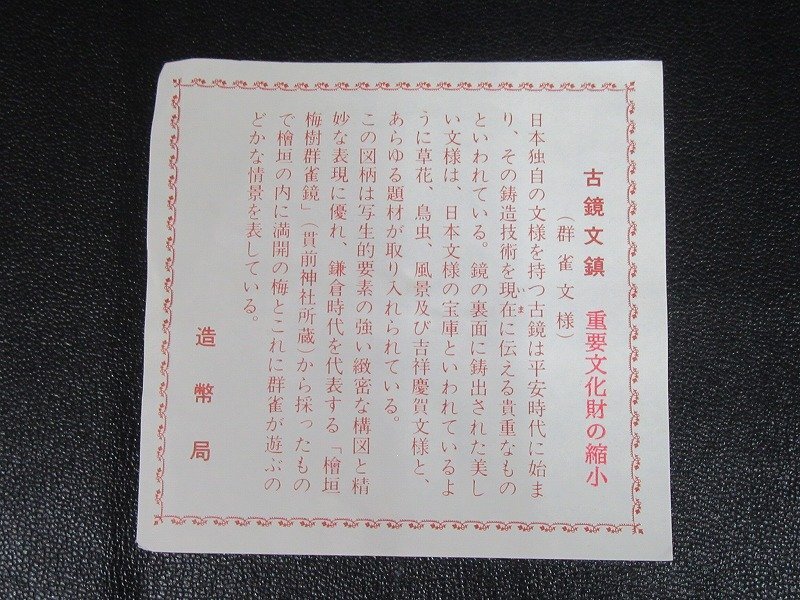 古鏡文鎮 重要文化財の縮小
（群雀文様）
日本独自の文様を持つ古鏡は平安時代に始ま
り、その鋳造技術を現在に伝える貴重なもの
いま
といわれている。鏡の裏面に鋳出された美し
い文様は、日本文様の宝庫といわれているよ
うに草花、鳥虫、風景及び吉祥慶賀文様と、
あらゆる題材が取り入れられている。
この図柄は写生的要素の強い緻密な構図と精
妙な表現に優れ、鎌倉時代を代表する「檜垣
梅樹群雀鏡」（貫前神社所蔵）から採ったもの
で檜垣の内に満開の梅とこれに群雀が遊ぶの
どかな情景を表している。
造幣局